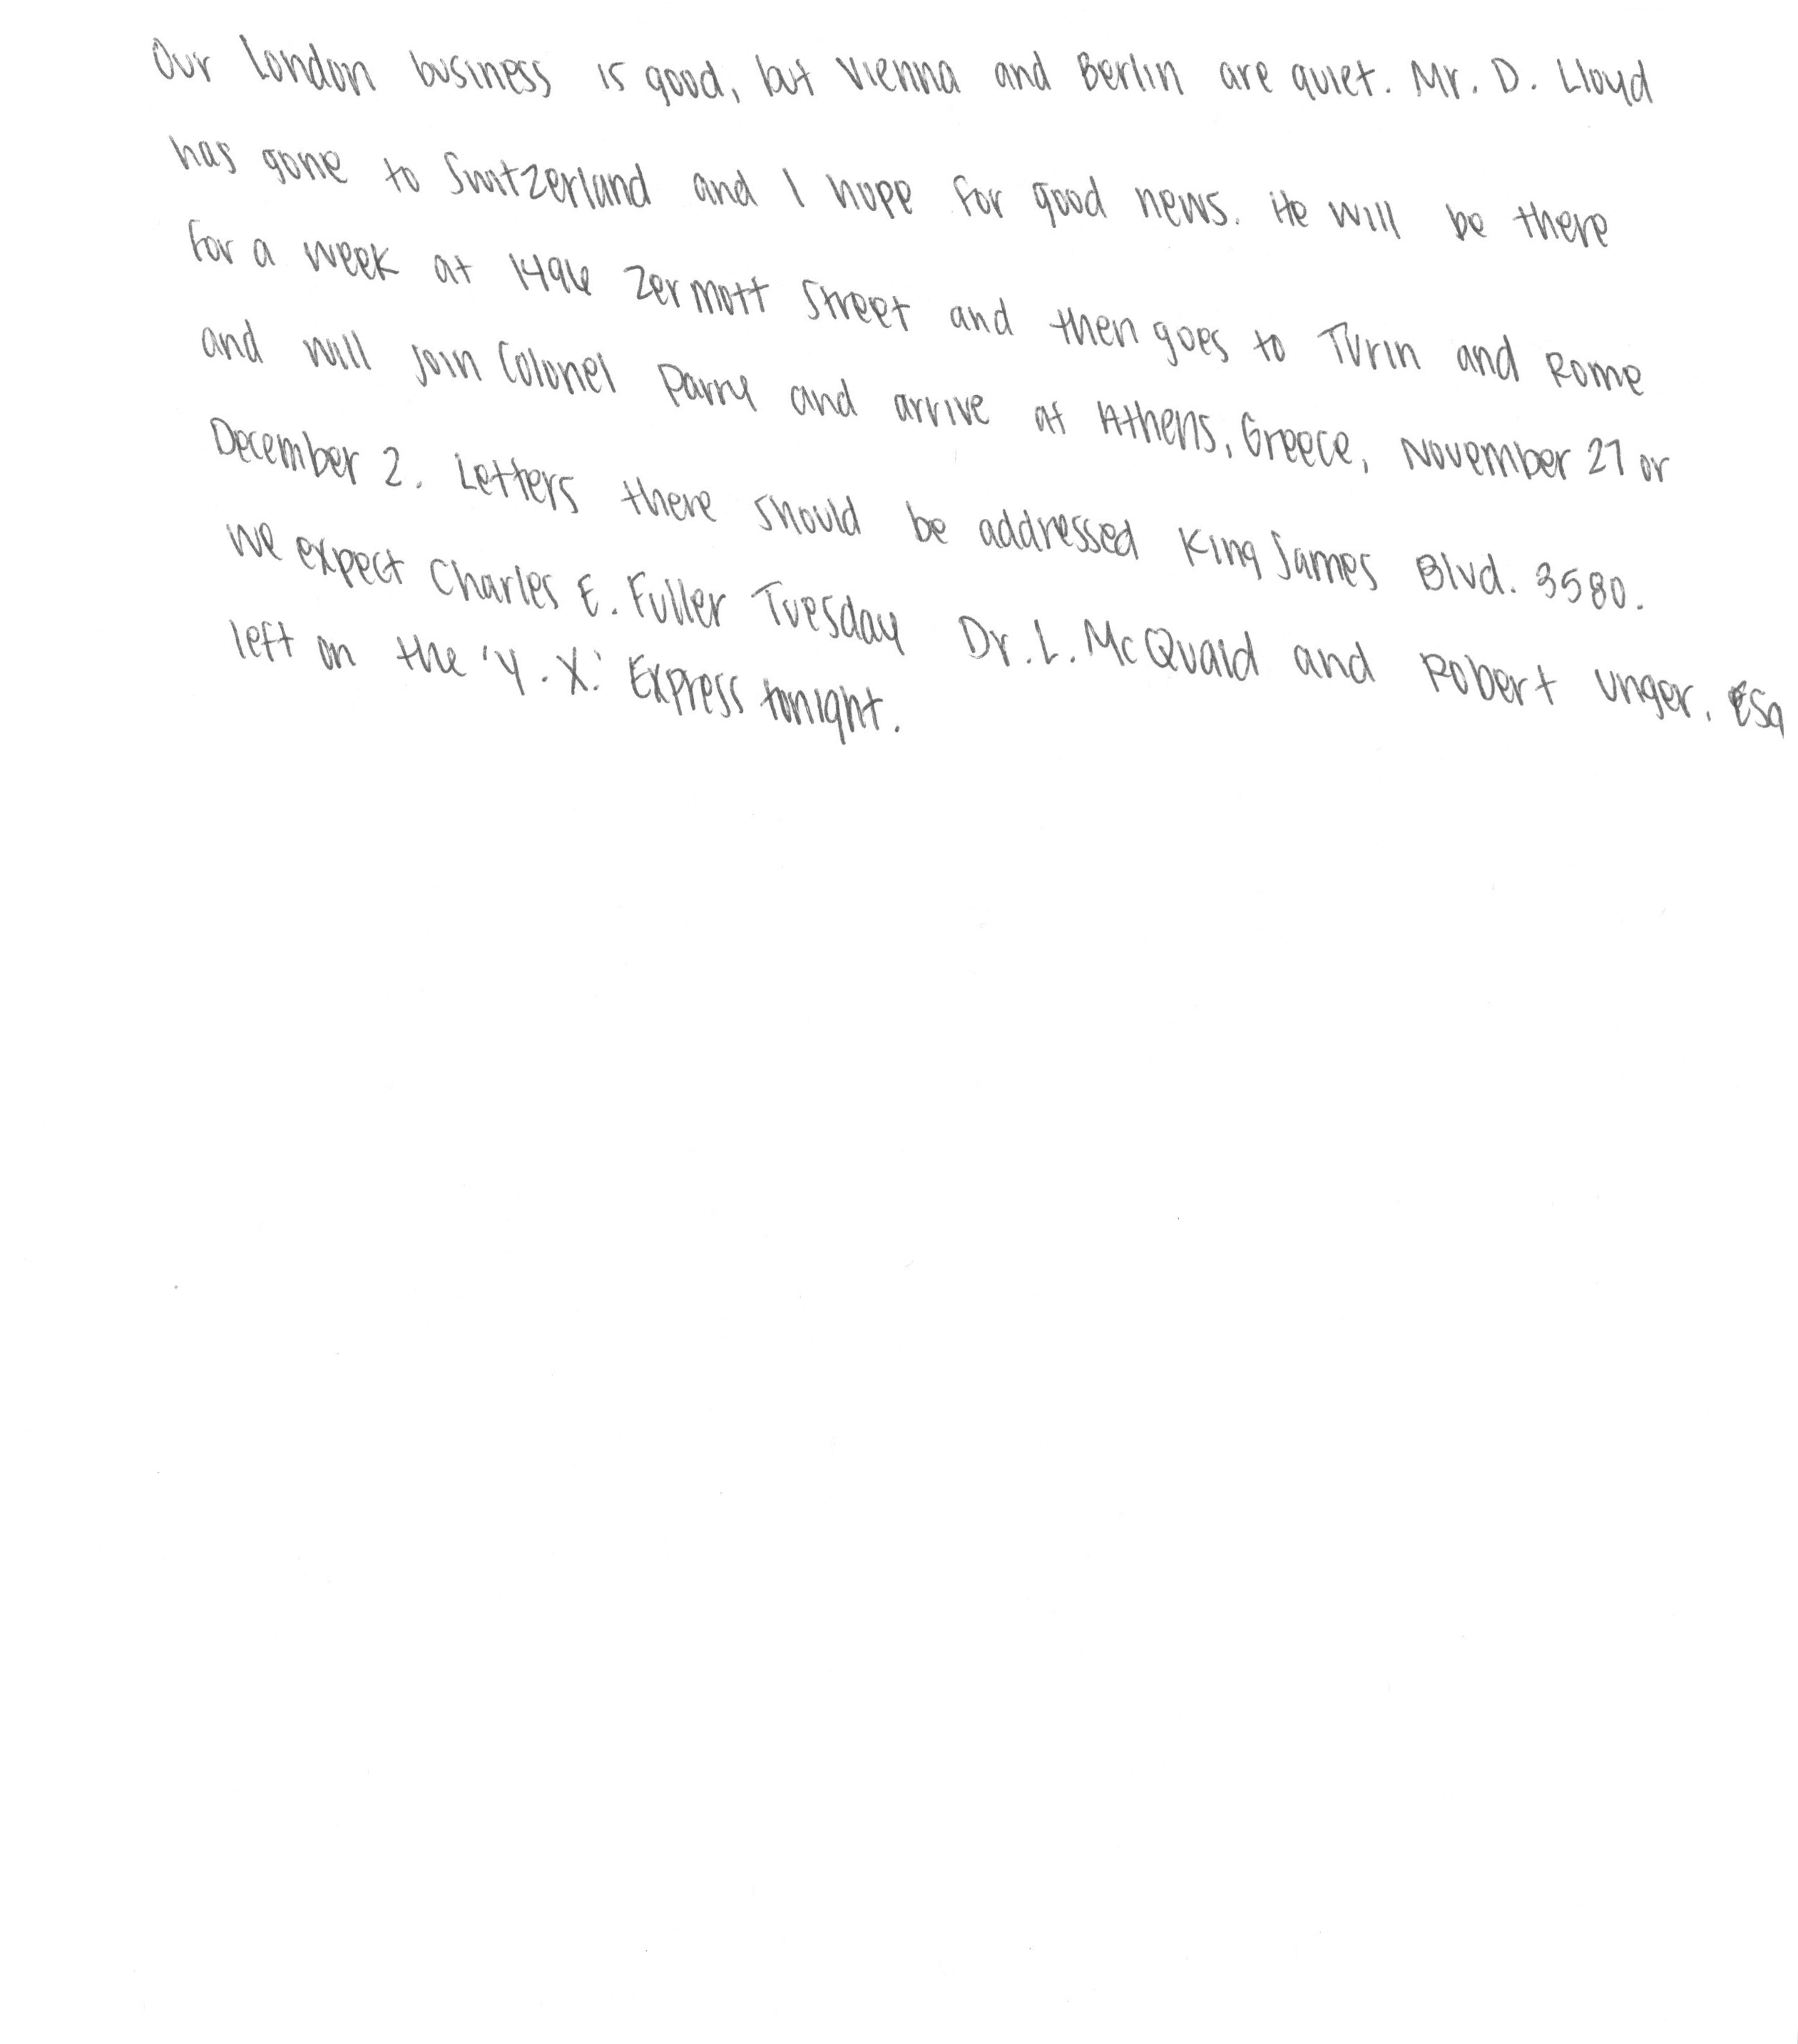 Our London business is good, but Vienna and Berlin are quiet. Mr. D. Lloyd
has gone to Switzerland and I hope for good news. He will be there
for a week at 1496 Zermott Street and then goes to Turin and Rome
and will join Colonel Parry and arrive at Athens, Greece, November 27 or
December 2. Letters there should be addressed King James Blvd. 3580.
We expect Charles E. Fuller Tuesday Dr. L. McQuaid and Robert Unger, Esq
left on the 'Y. X.' Express tonight.